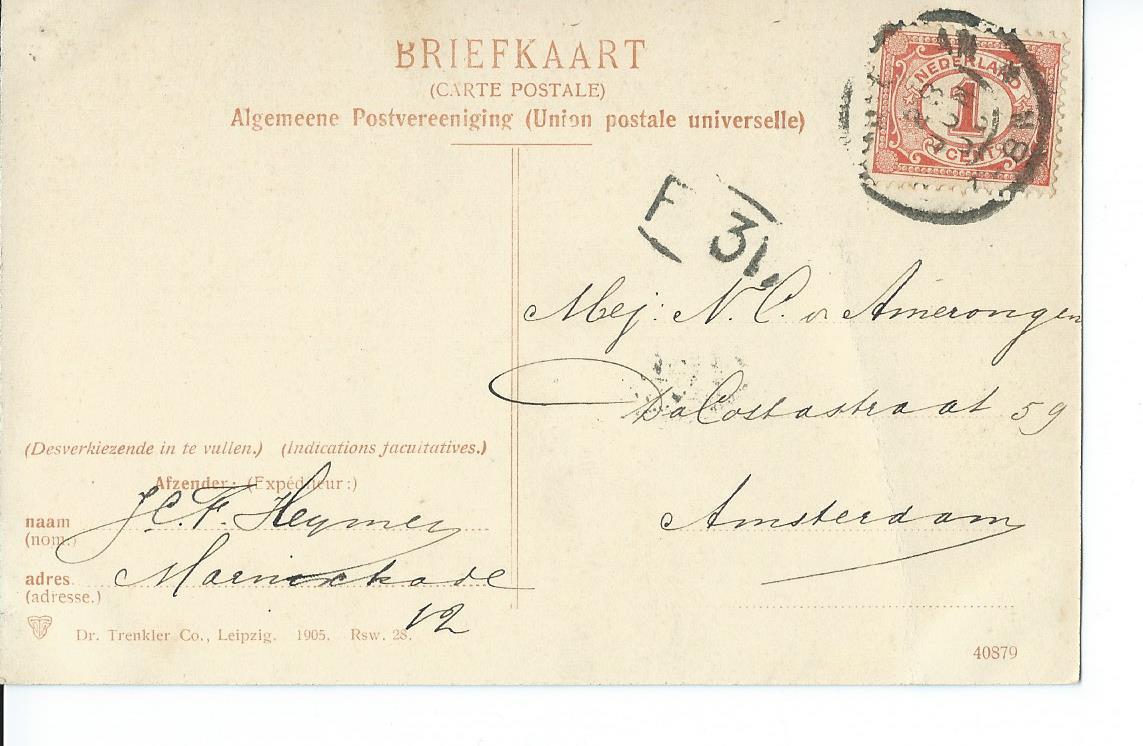 BRIEFKAART
(CARTE POSTALE)
Algemeene Postvereeniging (Union postale universelle)
NEDERLAND
1
CENT
F 31
Mej: N. C. v Amerongen
Da Costastraat 59
Amsterdam
(Desverkiezende in te vullen.) (Indications facultatives.)
Afzender: (Expéditeur:)
naam J.C.F. Heymer
(nom.)
adres. Marnixkade
(adresse.)
12
Dr. Trenkler Co., Leipzig. 1905. Rsw. 28.
40879